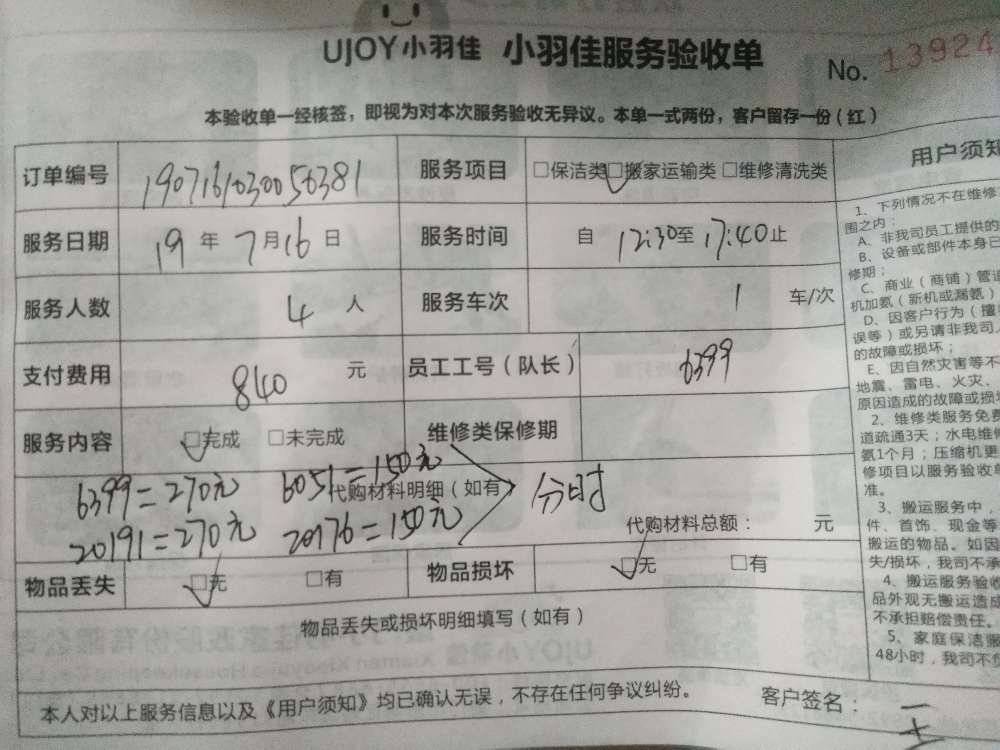 UJOY小羽佳 小羽佳服务验收单
No. 13924
本验收单一经核签，即视为对本次服务验收无异议。本单一式两份，客户留存一份（红）
订单编号 1907161030056381 服务项目 □保洁类 □搬家运输类 □维修清洗类
服务日期 19 年 7 月 16 日 服务时间 自 12:30 至 17:40 止
服务人数 4 人 服务车次 1 车/次
支付费用 840 元 员工工号（队长） 6399
服务内容 □完成 □未完成 维修类保修期
6399=270元 6051=150元
代购材料明细（如有 分时
20191=270元 20176=150元
代购材料总额： 元
物品丢失 □无 □有 物品损坏 □无 □有
物品丢失或损坏明细填写（如有）
本人对以上服务信息以及《用户须知》均已确认无误，不存在任何争议纠纷。
客户签名：
用户须知
1、下列情况不在维修
围之内：
A、非我司员工提供的
B、设备或部件本身已
修期；
C、商业（商铺）管道
机加氨（新机或漏氨）
D、因客户行为（擅
误等）或另请非我司
的故障或损坏；
E、因自然灾害等不
地震、雷电、火灾、
原因造成的故障或损
2、维修类服务免
道疏通3天；水电维
氨1个月；压缩机更
修项目以服务验收单
准。
3、搬运服务中，
件、首饰、现金等
搬运的物品。如因
失/损坏，我司不承
4、搬运服务验收
品外观无搬运造成
不承担赔偿责任。
5、家庭保洁服
48小时，我司不负